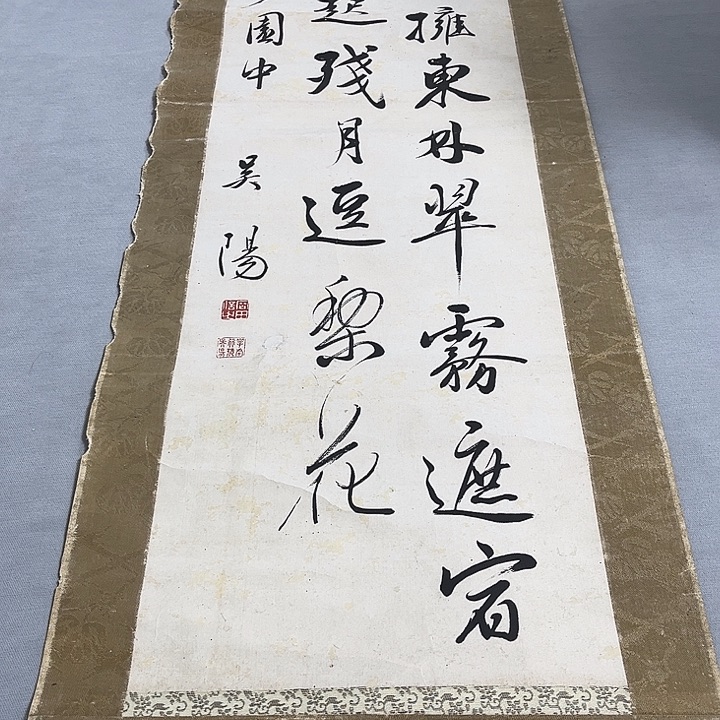 擁東林翠霧遮宿
殘月逗梨花
園中
吴陽